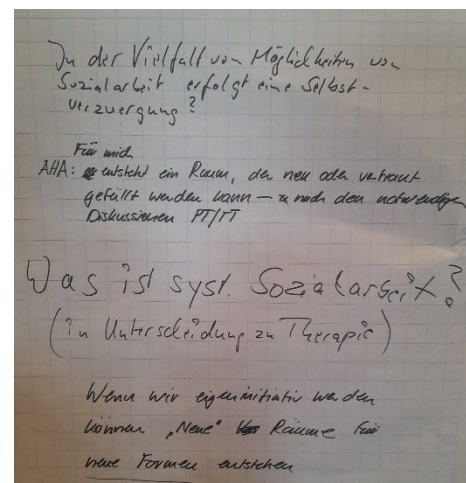 In der Vielfalt von Möglichkeiten von
Sozialarbeit erfolgt eine Selbst-
verzwergung?
Für mich
AHA: entsteht ein Raum, der neu oder vertraut
gefüllt werden kann – nach den notwendigen
Diskussionen PT/FT
Was ist syst. Sozialarbeit?
(in Unterscheidung zu Therapie)
Wenn wir eigeninitiativ werden
können "Neue" Räume für
neue Formen entstehen